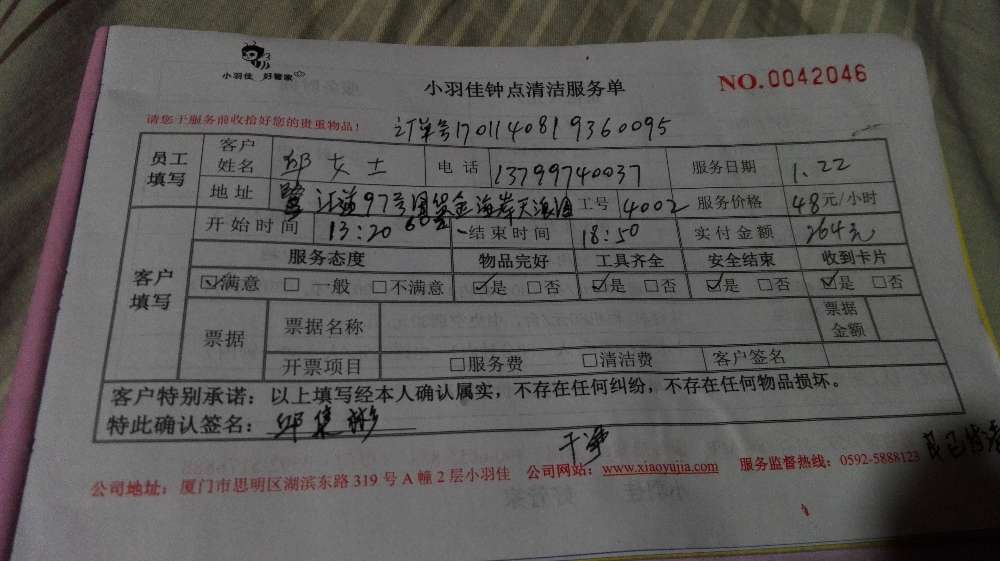 小羽佳 好管家
小羽佳钟点清洁服务单
NO.0042046
请您于服务前收拾好您的贵重物品！
订单号1701140819360095
员工填写 客户姓名 邱女士 电话 13799740037 服务日期 1.22
地址 鹭江道97号国贸金海岸天 工号 4002 服务价格 48元/小时
客户填写 开始时间 13:20 结束时间 18:50 实付金额 264元
服务态度 物品完好 工具齐全 安全结束 收到卡片
☑满意 □一般 □不满意 ☑是 □否 ☑是 □否 ☑是 □否 ☑是 □否
票据 票据名称 票据金额
开票项目 □服务费 □清洁费 客户签名
客户特别承诺：以上填写经本人确认属实，不存在任何纠纷，不存在任何物品损坏。
特此确认签名：邱
干净
公司地址：厦门市思明区湖滨东路 319 号 A 幢 2 层小羽佳 公司网站：www.xiaoyujia.com 服务监督热线：0592-5888123